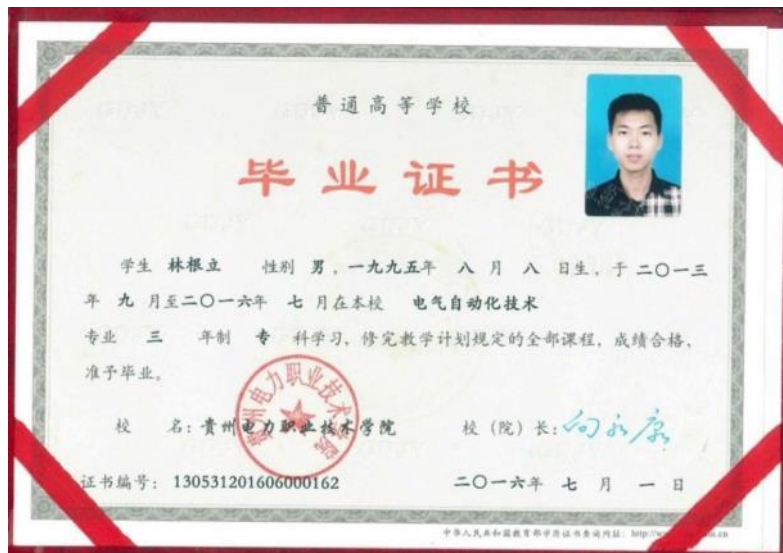 普通高等学校
毕业证书
学生 林根立 性别 男，一九九五年 八 月 八 日生，于 二〇一三
年 九 月至二〇一六年 七 月在本校 电气自动化技术
专业 三 年制 专 科学习，修完教学计划规定的全部课程，成绩合格，
准予毕业。
校 名：贵州电力职业技术学院 校（院）长：向永康
贵州电力职业技术学院
证书编号：130531201606000162 二〇一六年 七 月 一 日
中华人民共和国教育部学历证书查询网址：http://w